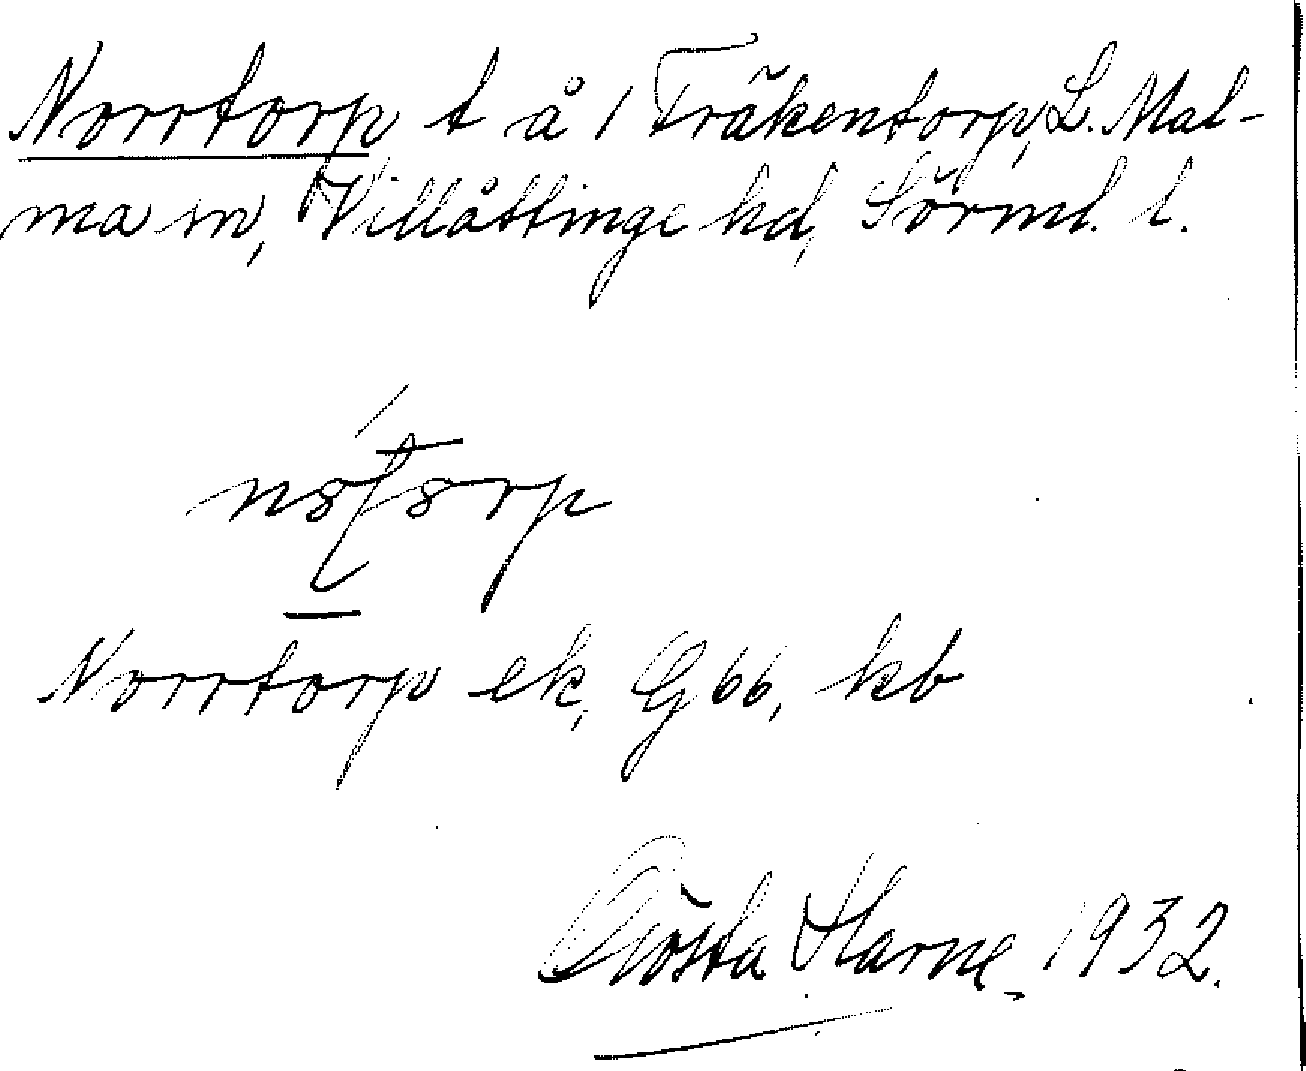 Norrtorp t å 1 Träkentorp, L. Mal-
ma sn, Villåttinge hd, Sörml. l.
Norrtorp ek, G 66, kb
Gösta Harne 1932.